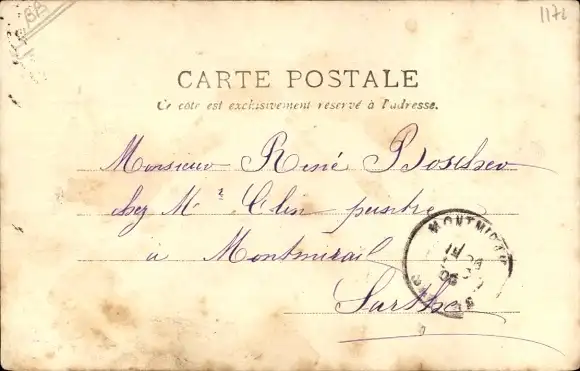 BB
117
CARTE POSTALE
Ce côté est exclusivement réservé à l'adresse.
Monsieur René
chez Mr Clin peintre
à Montmirail
MONTMIRAIL
Sarthe